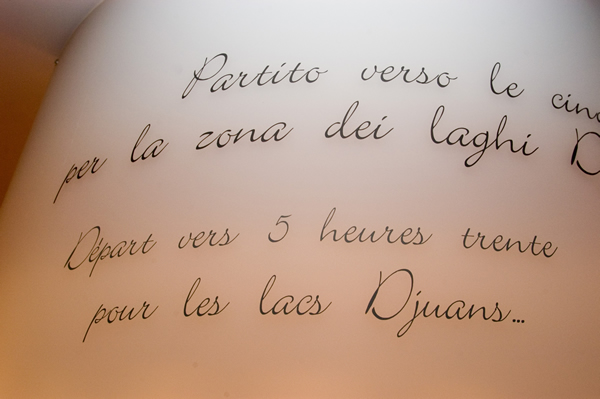 Partito verso le cinq
per la zona dei laghi D
Départ vers 5 heures trente
pour les lacs Djuans...